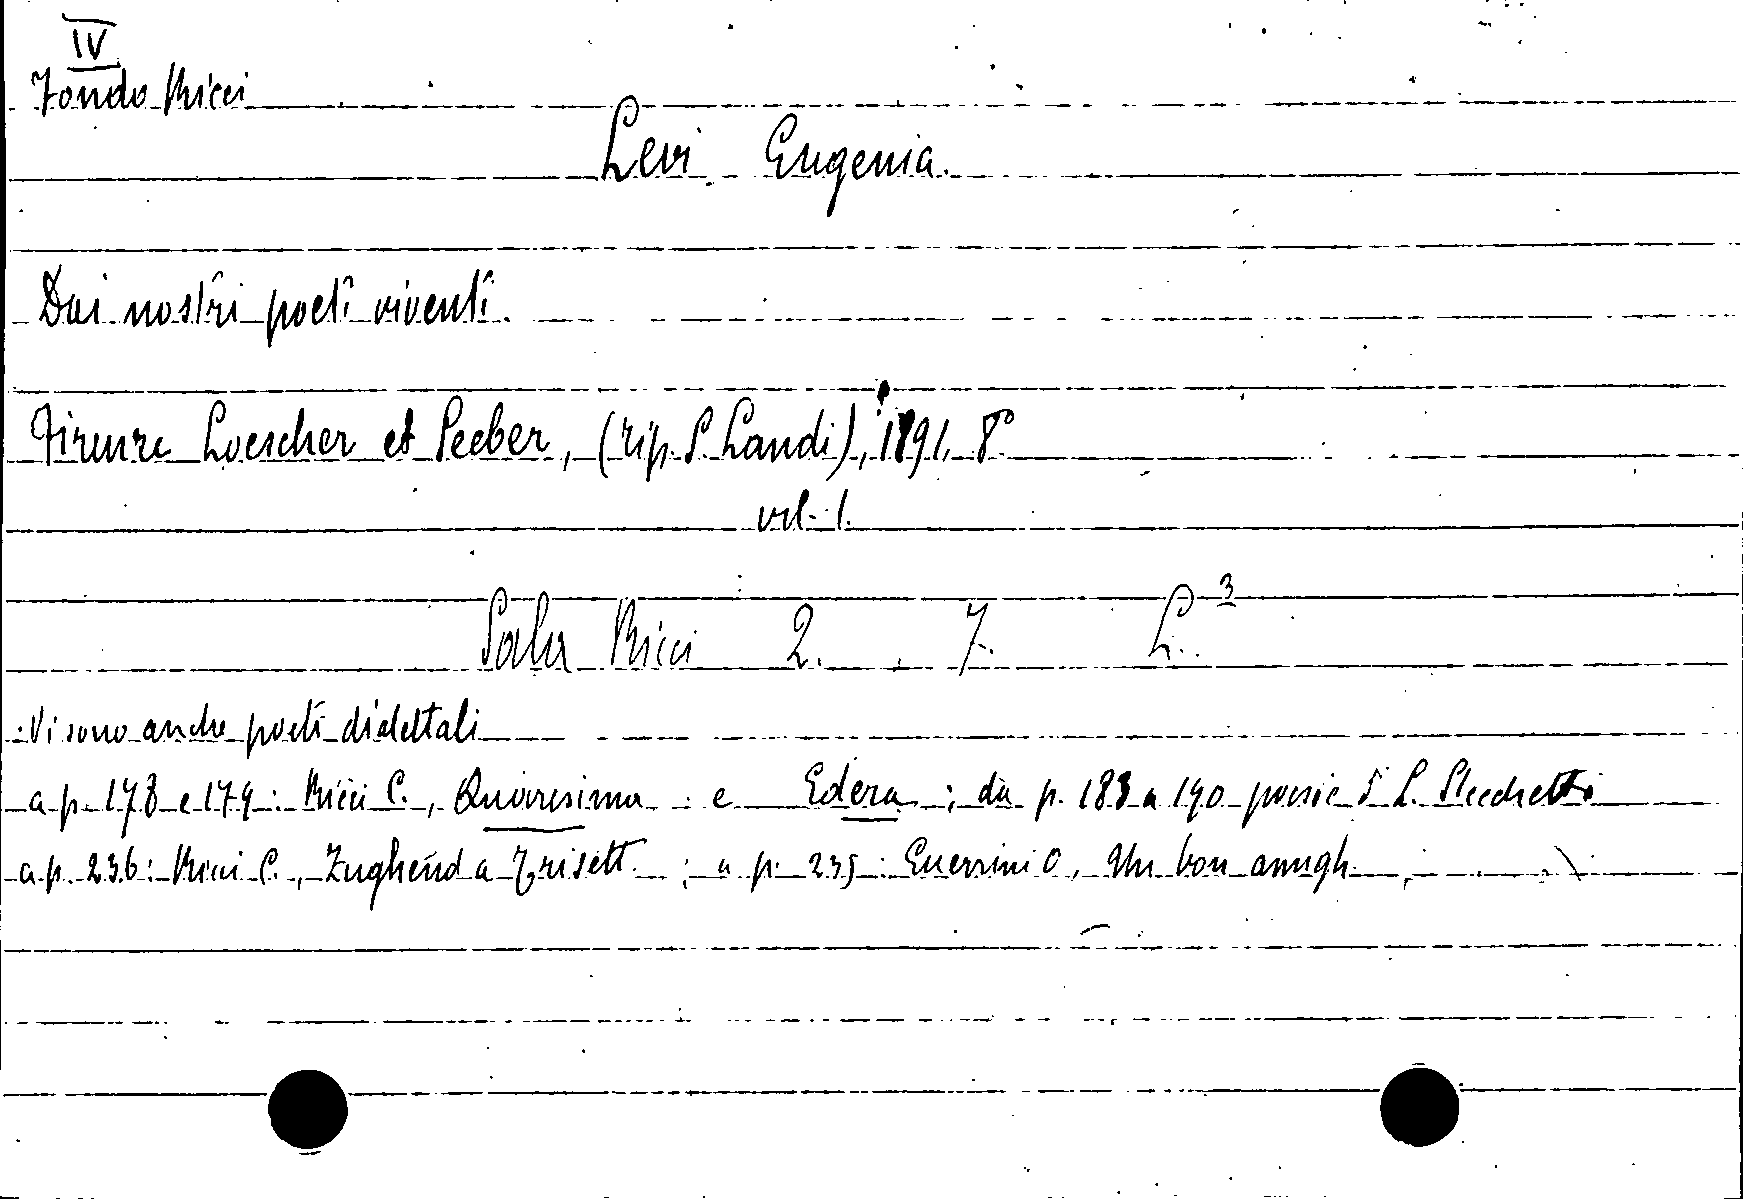 IV
Fondo Ricci
Levi Eugenia.
Dai nostri poeti viventi.
Firenze Loescher et Seeber, (tip. S. Landi), 1891. 8°
vol. 1.
Sala Ricci 2. 7. L.3
Vi sono anche poeti dialettali
a p. 178 e 179: Ricci C., Quaresima e Edera; da p. 183 a 190 poesie di L. Stecchetti
a p. 236: Ricci C., Zughend a Trisett.; a p. 235: Guerrini O, Un bon amigh.